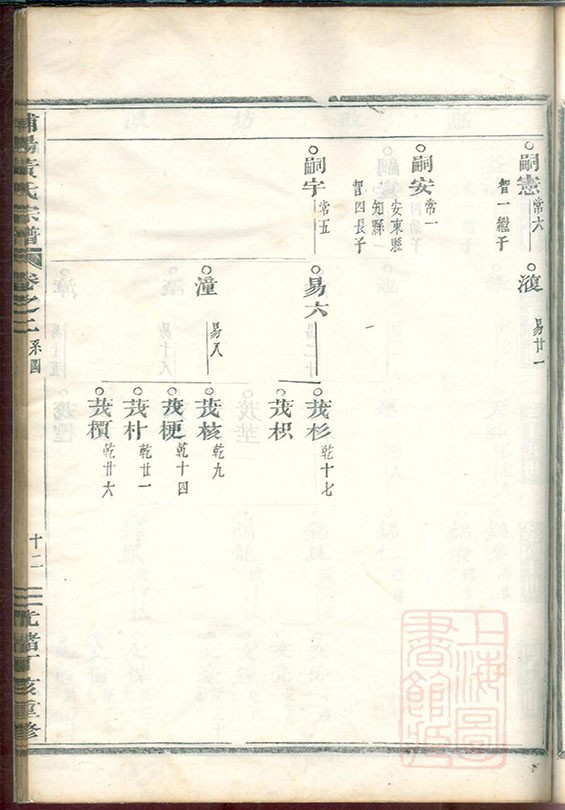 嗣憲
常六
智一繼子
嗣安
常一
安東縣
知縣
智四長子
嗣宇
常五
澓
易廿一
易六
潼
易八
茂杉
乾十七
茂枳
茂核
乾九
茂梗
乾十四
茂朴
乾廿一
茂檟
乾廿六
浦陽黃氏宗譜
卷之二
系圖
十二
光緒丁亥重修
上海圖
書館藏